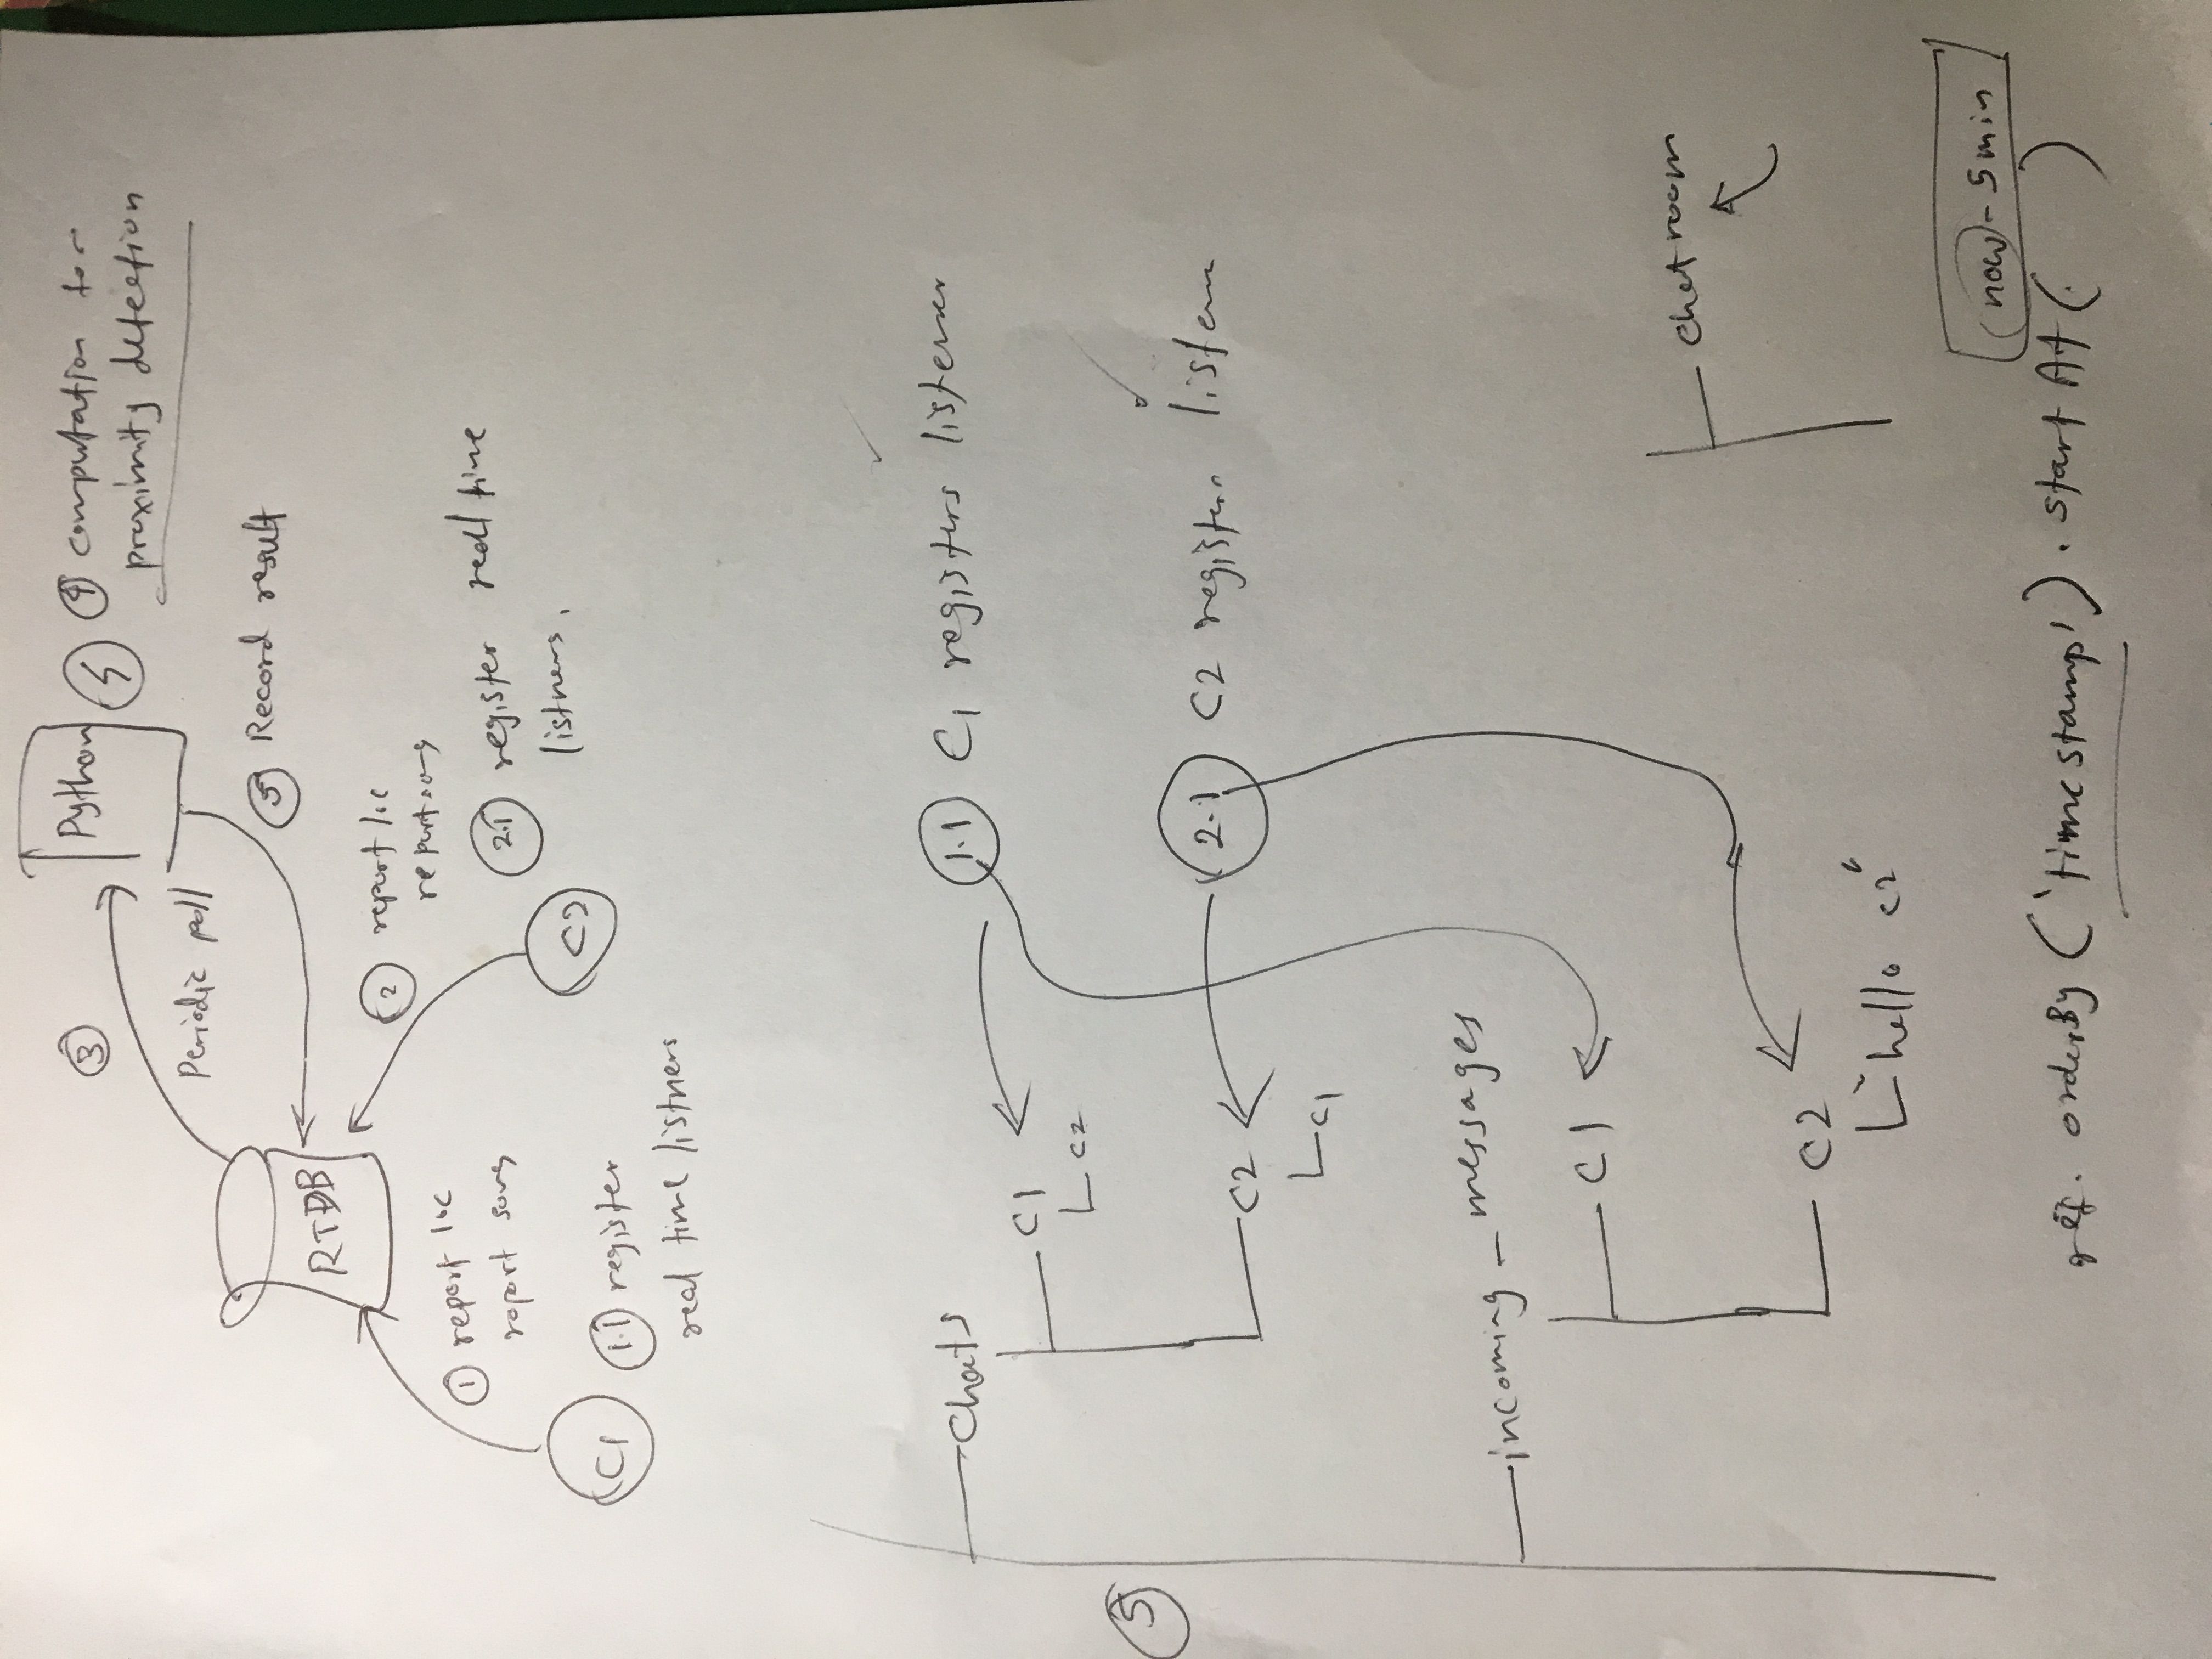 Python
4
4 computation for
proximity detection
3
Periodic poll
5 Record result
RTDB
2 report loc
2.1 register real time
listners.
C2
1 report loc
report song
1.1 register
real time listners
C1
5
chats
C1
C2
C2
C1
1.1 C1 registers listener
2.1 C2 registers listener
incoming - messages
C1
C2
'hello c2'
chat room
(now) - 5 min
ref. orderBy ('timestamp'). start At ( )